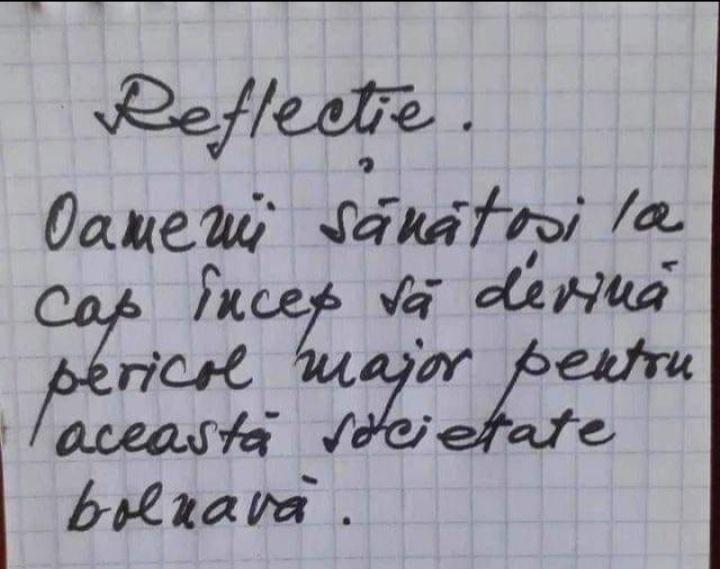 Reflecție.
Oamenii sănătoși la
cap încep să devină
pericol major pentru
această societate
bolnavă.